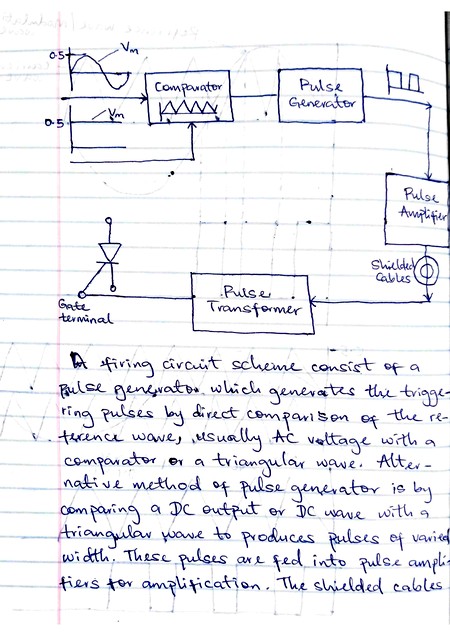 0.5 Vm
Comparator
Pulse
Generator
0.5 Vm
Pulse
Amplifier
Shielded
Cables
Pulse
Transformer
Gate
terminal
A firing circuit scheme consist of a
pulse generator which generates the trigge-
ring pulses by direct comparison of the re-
ference wave, usually AC voltage with a
comparator or a triangular wave. Alter-
native method of pulse generator is by
comparing a DC output or DC wave with a
triangular wave to produces pulses of varied
width. These pulses are fed into pulse ampli-
fiers for amplification. The shielded cables